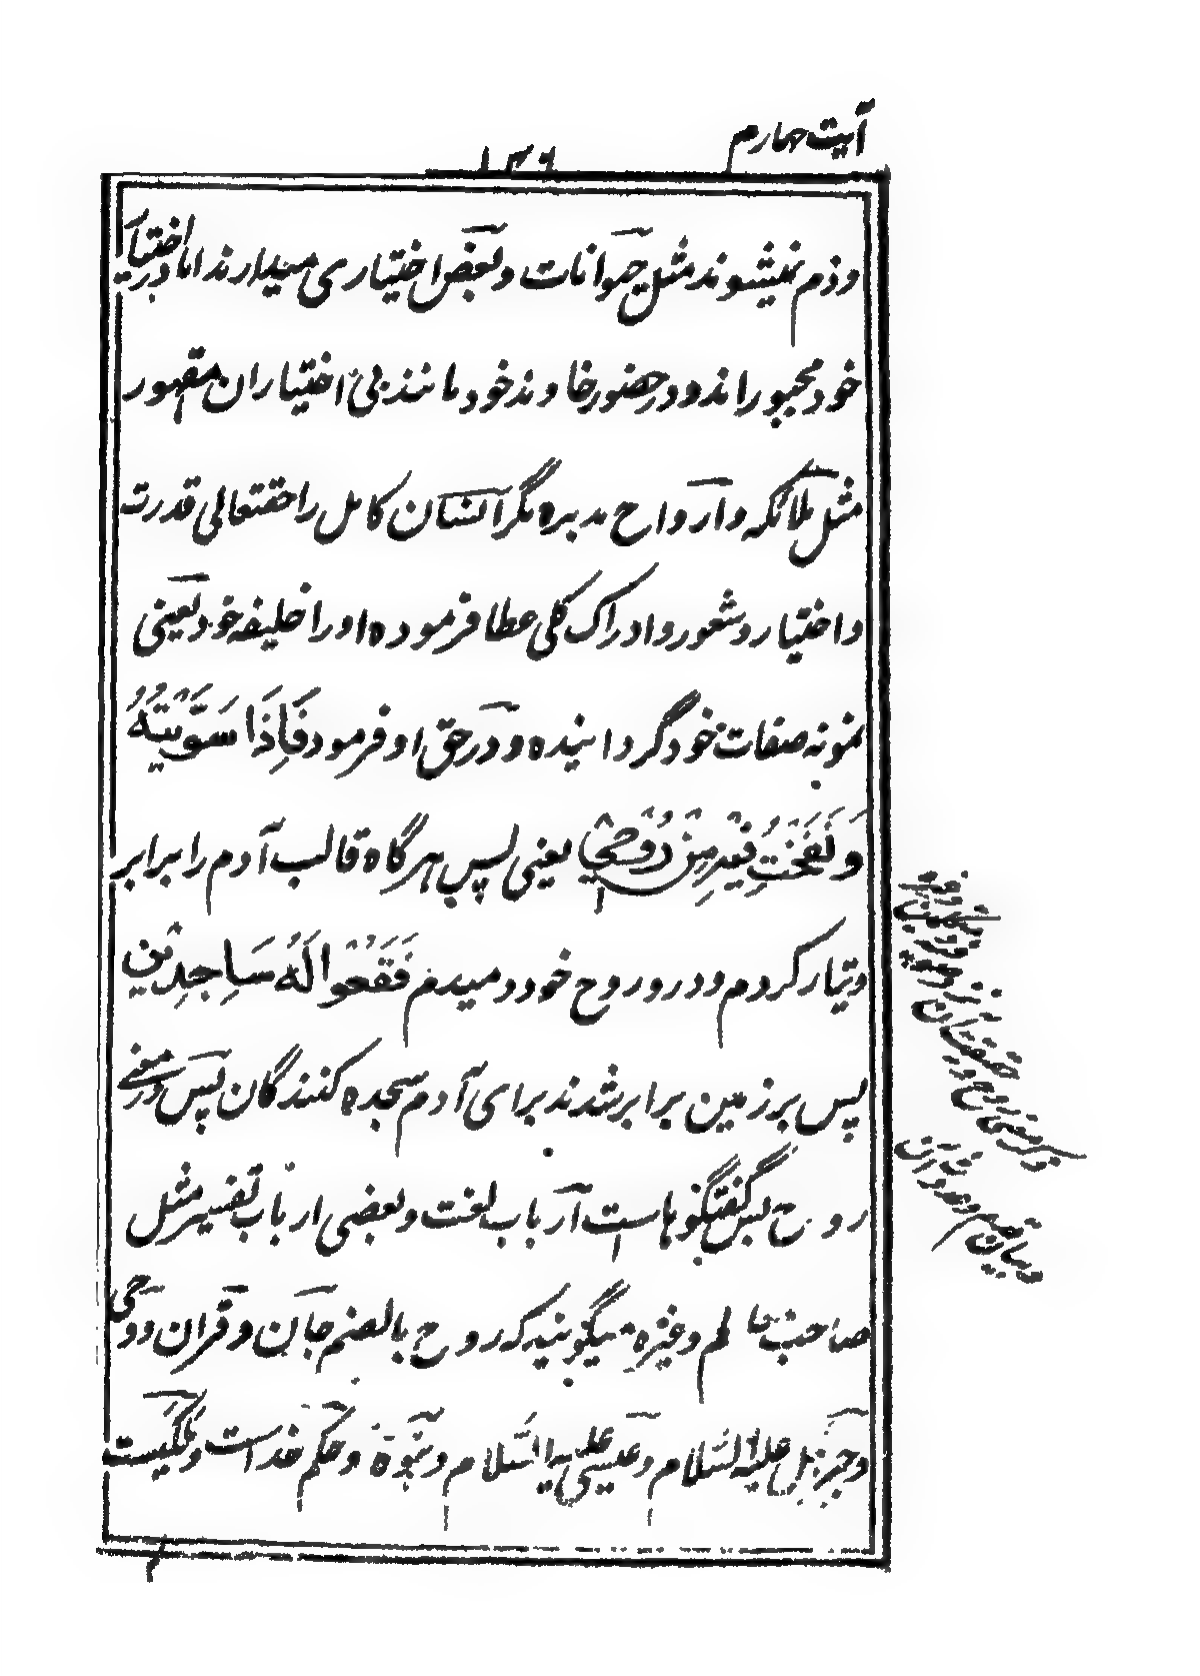 آیت چهارم
۱۳۶
و ذم نمیشوند مثل حیوانات و بعض اختیاری میدارند اما در اختیار
خود مجبور اند و در حضور خاوند خود مانند بی اختیاران مقهور
مثل ملائکه و ارواح مدبره مگر انسان کامل را حقتعالی قدرت
و اختیار و شعور و ادراک کلی عطا فرموده او را خلیفه خود یعنی
نمونه صفات خود گردانیده و در حق او فرمود فَاِذَا سَوَّیْتُهُ
وَنَفَخْتُ فِیْهِ مِنْ رُوْحِیْ یعنی پس هرگاه قالب آدم را برابر
و تیار کردم و در و روح خود دمیدم فَقَعُوْا لَهُ سَاجِدِیْن
پس بر زمین برابر شدند برای آدم سجده کنندگان پس در معنی
روح بس گفتگوهاست ارباب لغت و بعضی ارباب تفسیر مثل
صاحب معالم و غیره میگویند که روح بالضم جان و قران و وحی
و جبرئیل علیه السلام و عیسی علیه السلام و نبوة و حکم خداست و ملکیست
ذکر معنی روح و حقیقت آن
و بیان قدم و حدوث آن